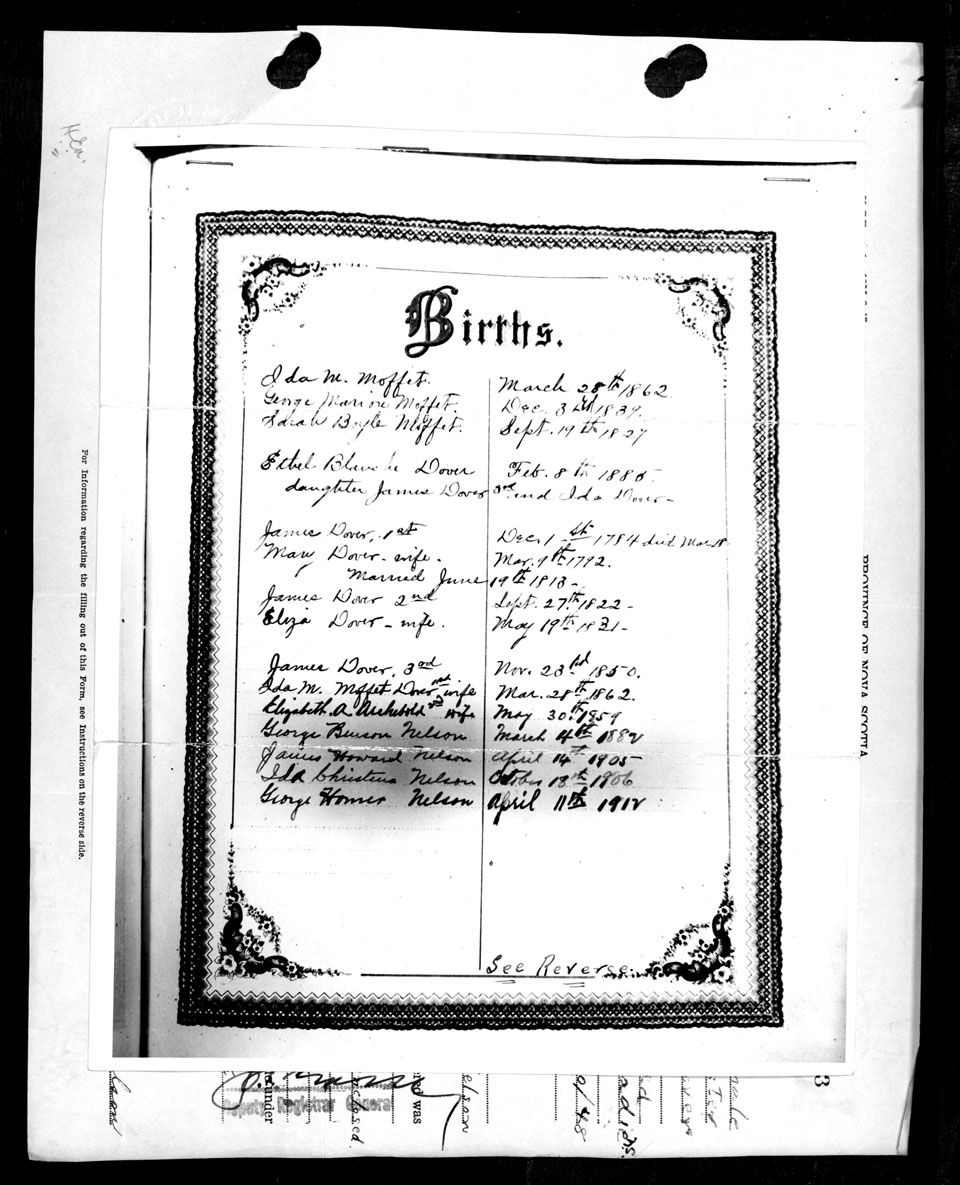 Births.
Ida M. Moffet. March 28th 1862
George Marion Moffet. Dec. 3rd 1839.
Sarah Boyle Moffet. Sept. 19th 1827
Ethel Blanche Dover Feb. 8th 1885.
daughter James Dover 3rd and Ida Dover-
James Dover, 1st Dec. 1st 1784 died Mar. 18
Mary Dover - wife. Mar. 9th 1792.
Married June 19th 1813-
James Dover 2nd Sept. 27th 1822-
Eliza Dover - wife. May 19th 1831-
James Dover, 3rd Nov. 23rd 1850.
Ida M. Moffet Dover wife Mar. 28th 1862.
Elizabeth A. Archebold wife May 30th 1959
George Benson Nelson March 4th 1882
James Howard Nelson April 14th 1905
Ida Christena Nelson October 18th 1906
George Homer Nelson April 11th 1912
See Reverse
For Information regarding the filling out of this Form, see Instructions on the reverse side.
PROVINCE OF NOVA SCOTIA
Deputy Registrar General
under
nclosed.
red was
elson
3